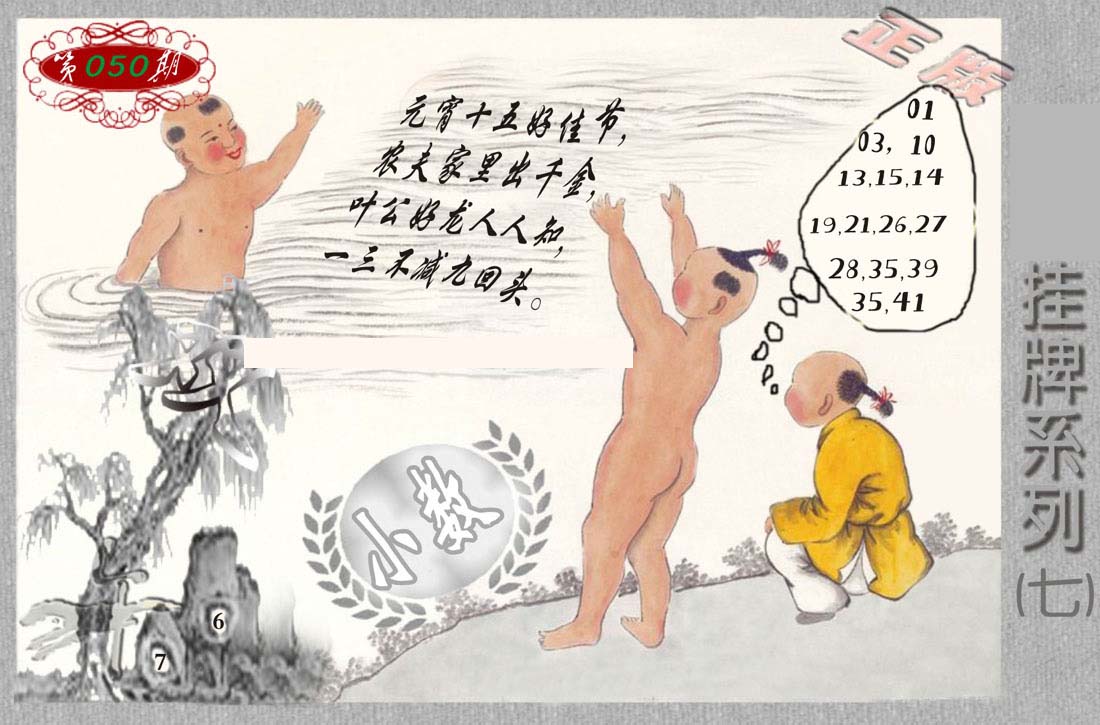 第050期
正版
元宵十五好佳节，
农夫家里出千金，
叶公好龙人人知，
一三不减九回头。
01
03，10
13,15,14
19,21,26,27
28,35,39
35,41
挂牌系列(七)
小数
6
7